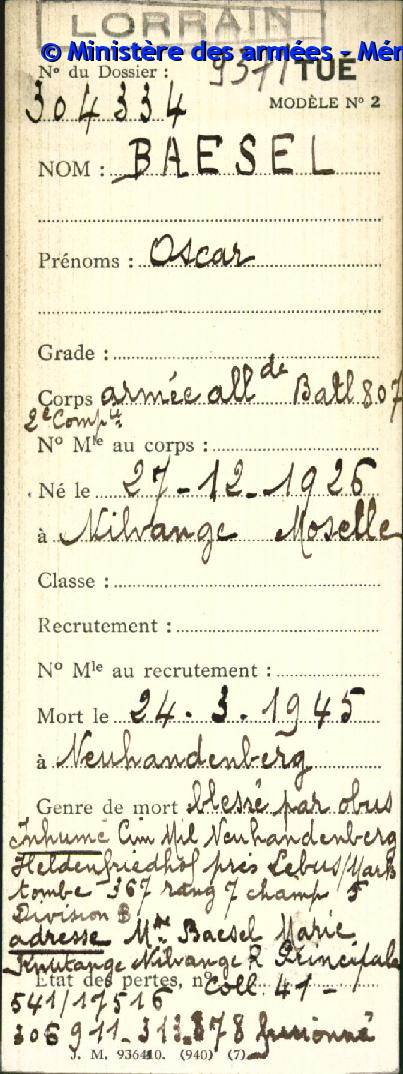 LORRAIN
© Ministère des armées - Mém
N° du Dossier : 9371 TUÉ
304334
MODÈLE N° 2
NOM : BAESEL
Prénoms : Oscar
Grade :
Corps armée all de Batl 807
2e Comp ie
N° Mle au corps :
Né le 27-12-1926
à Nilvange Moselle
Classe :
Recrutement :
N° Mle au recrutement :
Mort le 24.3.1945
à Neuhandenberg
Genre de mort blessé par obus
Inhumé Cim Mil Neuhandenberg
Heldenfriedhof près Lebus/Mark
tombe 367 rang 7 champ 5
Division B
adresse Mme Baesel Marie
Knutange Nilvange R Principale
Etat des pertes, n° Coll 41 -
541/17516
306 911-313.878 fusionné
J. M. 936410. (940) (7)